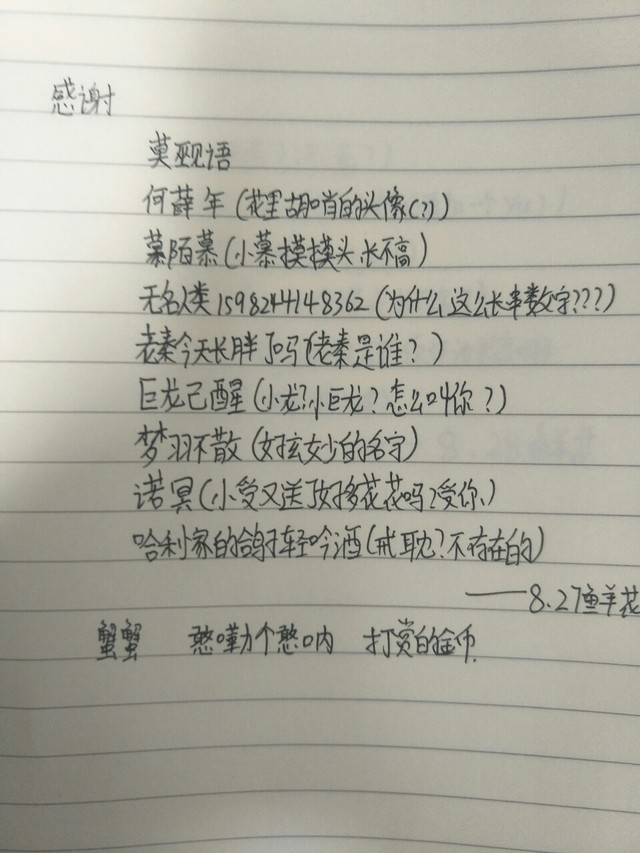 感谢
莫卿语
何薛年(花里胡哨的头像(?))
慕陌慕(小慕摸摸头，长不高)
无名人类1598244148362(为什么这么长串数字???)
老秦今天长胖了吗(老秦是谁?)
巨龙已醒(小龙?小巨龙?怎么叫你?)
梦羽不散(好玄妙的名字)
诺冥(小受又送了好多花花吗?爱你)
哈利家的鸽子轻吟酒(戒耽?不存在的)
——8.27鱼羊花
蟹蟹 憨嘞个憨呐 打赏的金币.